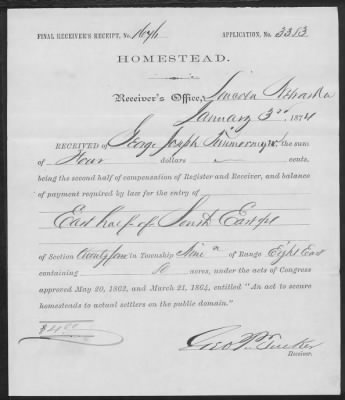 FINAL RECEIVER'S RECEIPT, No. 1676 APPLICATION, No. 3313
HOMESTEAD.
Receiver's Office, Lincoln Nebraska
January 3rd 1874
RECEIVED OF George Joseph the sum
of Four dollars cents,
being the second half of compensation of Register and Receiver, and balance
of payment required by law for the entry of
East half of South East qr
of Section twenty four in Township Nine n of Range Eight East
containing 80 acres, under the acts of Congress
approved May 20, 1862, and March 21, 1864, entitled "An act to secure
homesteads to actual settlers on the public domain."
$4.00
Geo P. Tucker
Receiver.